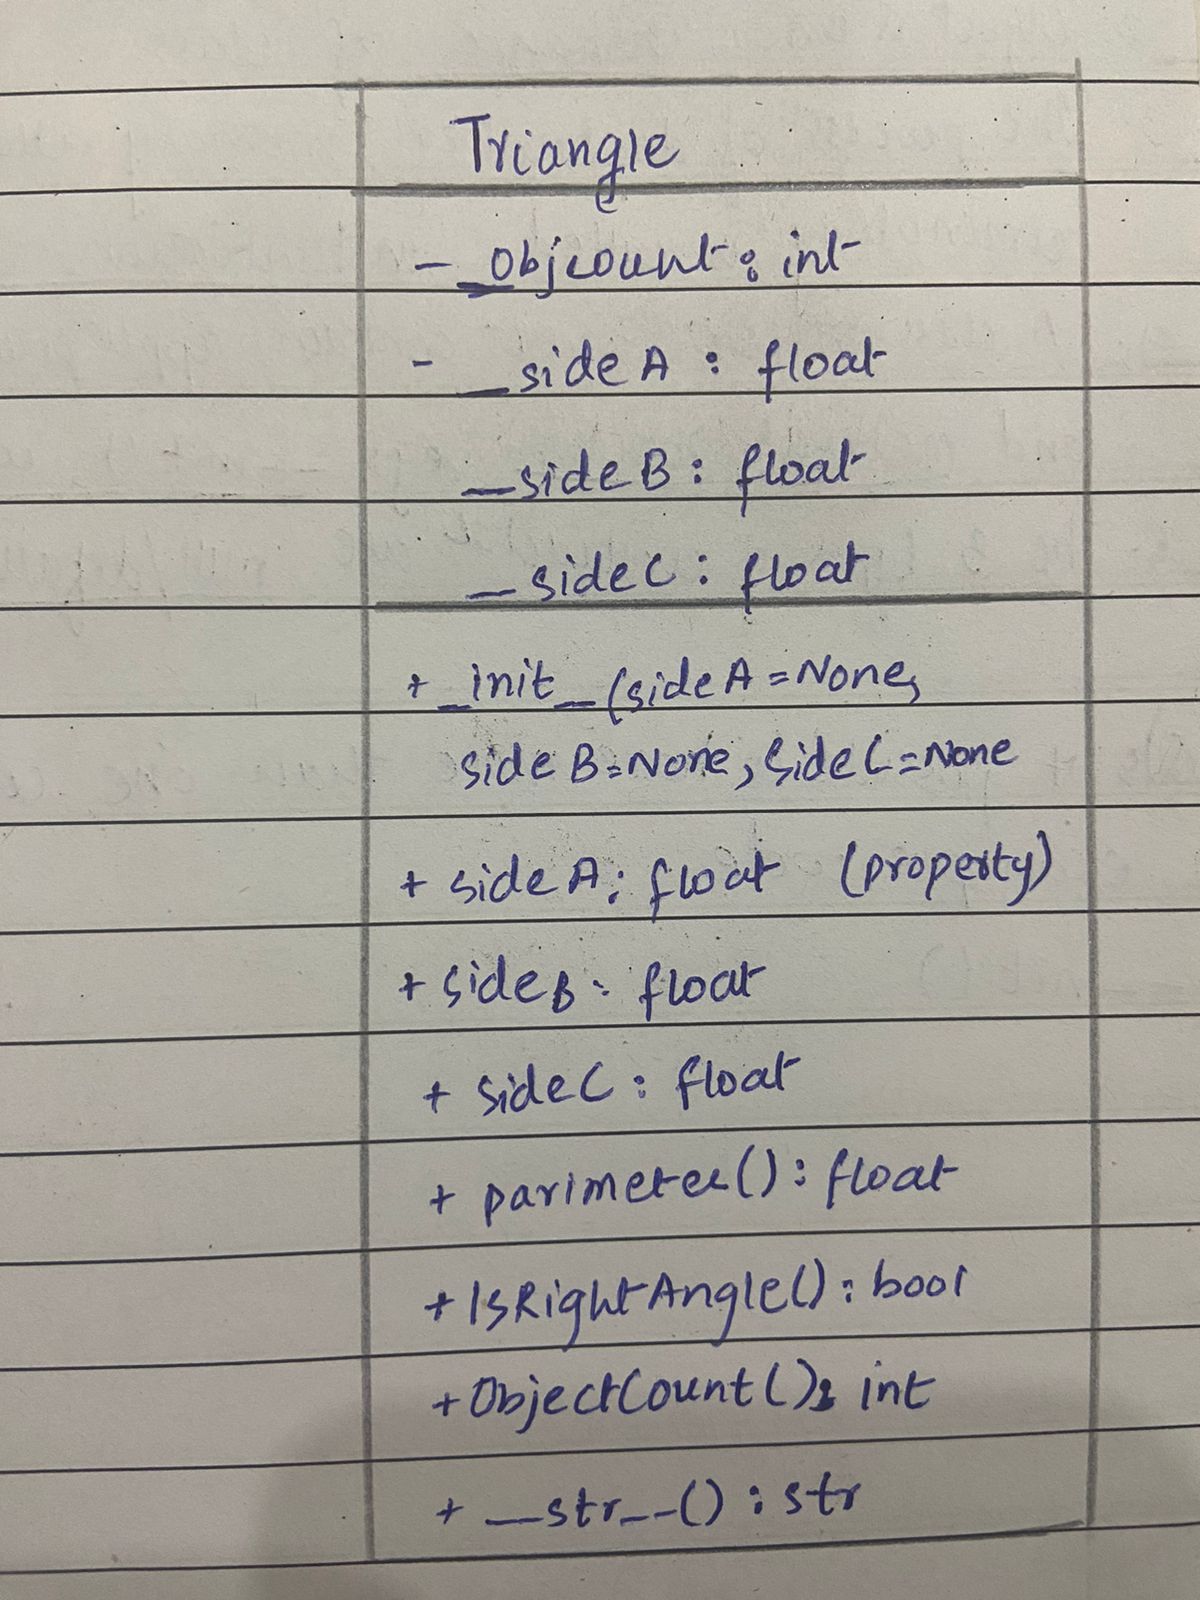 Triangle
- __objcount : int
- __sideA : float
__sideB : float
__sideC : float
+ _init_ (sideA = None,
sideB = None, sideC = None
+ sideA : float (property)
+ sideB : float
+ sideC : float
+ parimeter() : float
+ IsRightAngle() : bool
+ ObjectCount() : int
+ __str__() : str